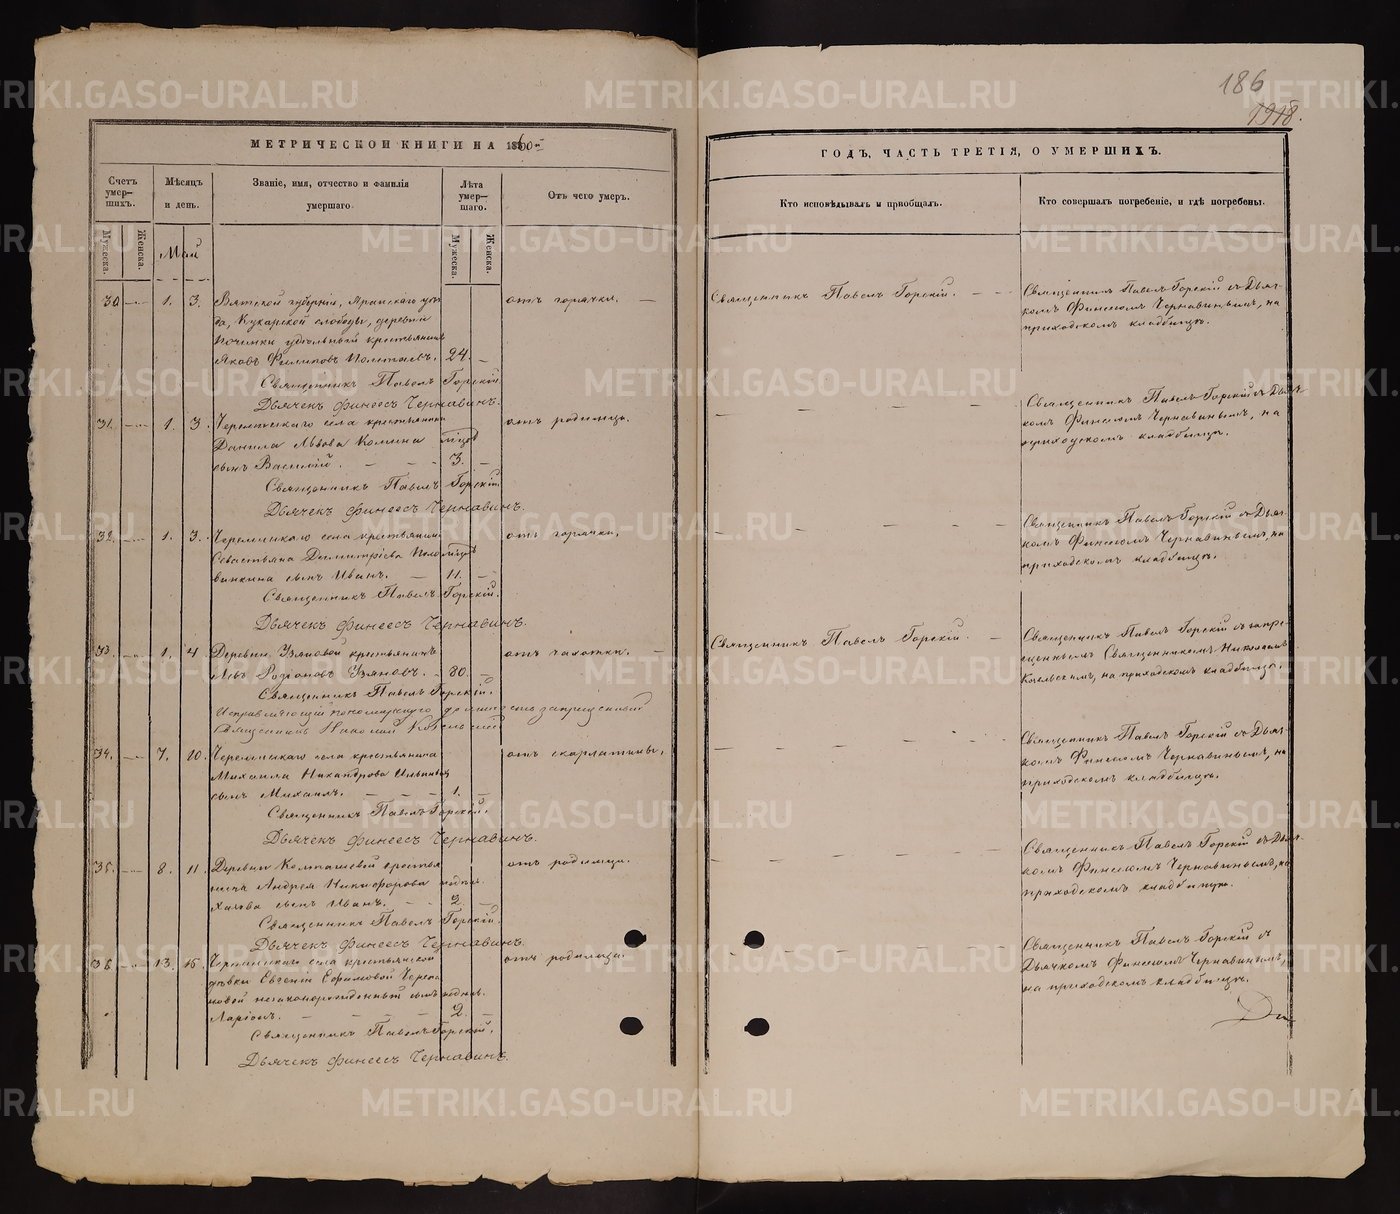 186
1918.
МЕТРИЧЕСКОЙ КНИГИ НА 1860й
ГОДЪ, ЧАСТЬ ТРЕТІЯ, О УМЕРШИХЪ.
Счетъ умер-шихъ.
Мѣсяцъ и день.
Званіе, имя, отчество и фамилія умершаго.
Лѣта умер-шаго.
Отъ чего умеръ.
Кто исповѣдывалъ и пріобщалъ.
Кто совершалъ погребеніе, и гдѣ погребены.
Мужеска.
Женска.
Май
Мужеска.
Женска.
30 1. 3. Вятской губерніи, Яранскаго уѣз-
да, Кукарской слободы, деревни
Починки удѣльный крестьянинъ
Яковъ Филиповъ 24.
отъ горячки.
Священникъ Павелъ Горскій.
Священникъ Павелъ Горскій съ Дьяч-
комъ Финеесомъ Чернавинымъ, на
приходскомъ кладбищѣ.
Священникъ Павелъ Горскій.
Дьячекъ Финеесъ Чернавинъ.
31. 1. 3. села крестьянина
Данила Львова Комина
сынъ Василій. 3.
отъ родимца.
Священникъ Павелъ Горскій съ Дьяч-
комъ Финеесомъ Чернавинымъ, на
приходскомъ кладбищѣ.
Священникъ Павелъ Горскій
Дьячекъ Финеесъ Чернавинъ.
32. 1. 3. села крестьянина
Севастьяна Димитріева
сынъ Иванъ. 11.
отъ горячки.
Священникъ Павелъ Горскій съ Дьяч-
комъ Финеесомъ Чернавинымъ, на
приходскомъ кладбищѣ.
Священникъ Павелъ Горскій.
Дьячекъ Финеесъ Чернавинъ.
33. 1. 4. Деревни крестьянинъ
Левъ Родіоновъ 80.
отъ чахотки.
Священникъ Павелъ Горскій.
Священникъ Павелъ Горскій съ запре-
щеннымъ Священникомъ Николаемъ
на приходскомъ кладбищѣ.
Священникъ Павелъ Горскій.
Исправляющій пономарскую должность запрещенный
Священникъ Николай
34. 7. 10. села крестьянина
Михаила Никандрова
сынъ Михаилъ. 1.
отъ скарлатины.
Священникъ Павелъ Горскій съ Дьяч-
комъ Финеесомъ Чернавинымъ, на
приходскомъ кладбищѣ.
Священникъ Павелъ Горскій.
Дьячекъ Финеесъ Чернавинъ.
35. 8. 11. Деревни крестья-
нина Андрея Никифорова недѣл.
сынъ Иванъ. 2.
отъ родимца.
Священникъ Павелъ Горскій съ Дьяч-
комъ Финеесомъ Чернавинымъ, на
приходскомъ кладбищѣ.
Священникъ Павелъ Горскій.
Дьячекъ Финеесъ Чернавинъ.
36. 13. 15. села крестьянской
дѣвки Евгеніи Ефимовой
незаконорожденный сынъ недѣль.
Ларіонъ. 2.
отъ родимца.
Священникъ Павелъ Горскій съ
Дьячкомъ Финеесомъ Чернавинымъ,
на приходскомъ кладбищѣ.
Священникъ Павелъ Горскій.
Дьячекъ Финеесъ Чернавинъ.
METRIKI.GASO-URAL.RU